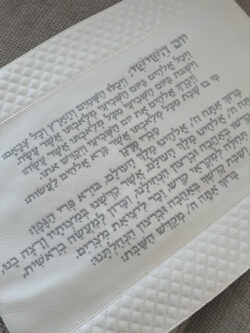 יום הששי: ויכלו השמים והארץ וכל צבאם:
ויכל אלהים ביום השביעי מלאכתו אשר עשה,
וישבת ביום השביעי מכל מלאכתו אשר עשה:
ויברך אלהים את יום השביעי ויקדש אתו,
כי בו שבת מכל מלאכתו אשר ברא אלהים לעשות:
סברי
ברוך אתה ה', אלהינו מלך העולם, בורא פרי הגפן:
ברוך אתה ה', אלהינו מלך העולם, אשר קדשנו במצותיו ורצה בנו,
ושבת קדשו באהבה וברצון הנחילנו, זכרון למעשה בראשית,
למקראי קדש, זכר ליציאת מצרים.
באהבה וברצון הנחלתנו:
ברוך אתה ה', מקדש השבת: